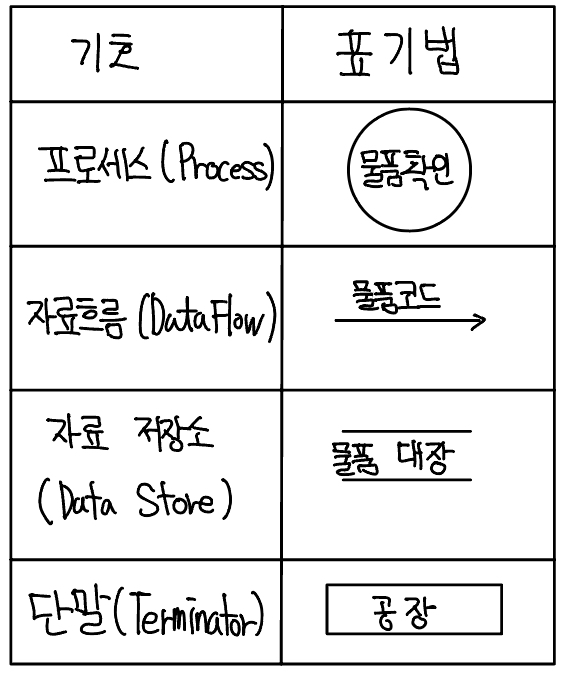 기호 표기법
프로세스(Process) 물품확인
자료흐름(DataFlow) 물품코드
자료 저장소
(Data Store) 물품 대장
단말(Terminator) 공장